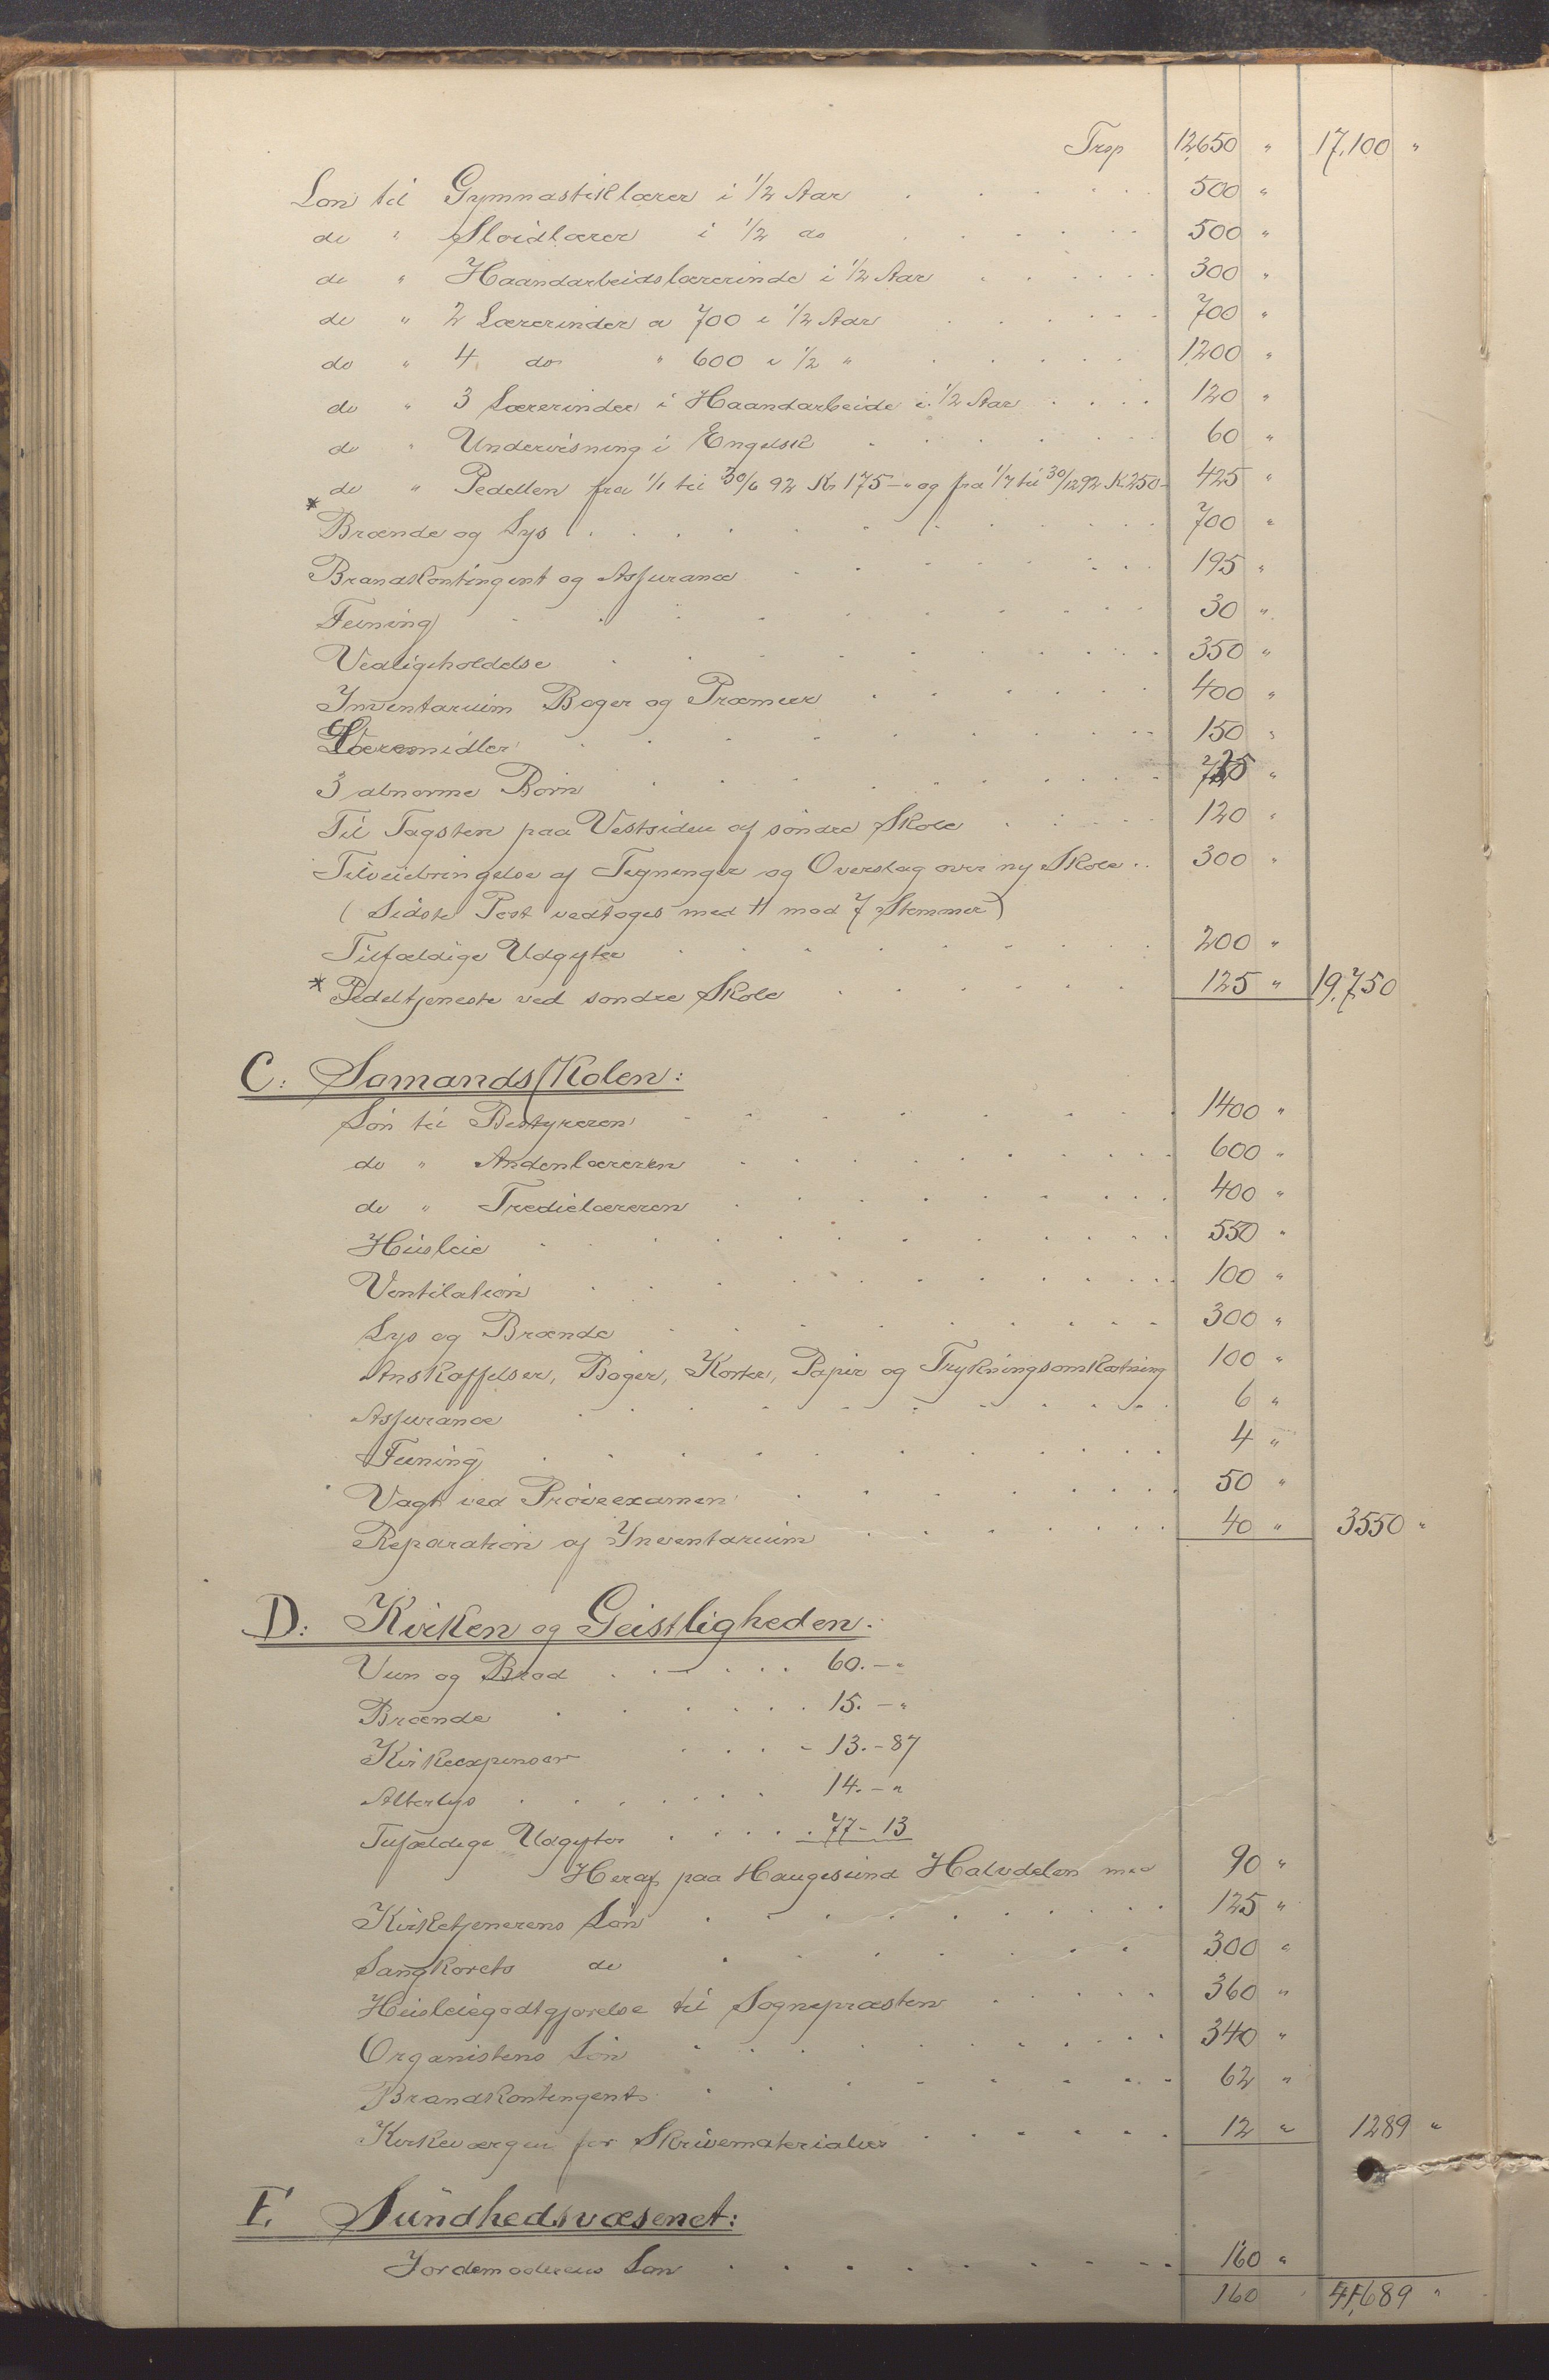 Trsp 12,650 " 17,100 "
Løn til Gymnastiklærer i 1/2 Aar 500 "
do " Sløidlærer i 1/2 do 500 "
do " Haandarbeidslærerinde i 1/2 Aar 300 "
do " 2 Lærerinder a 700 i 1/2 Aar 700 "
do " 4 do " 600 i 1/2 " 1200 "
do " 3 Lærerinder i Haandarbeide i 1/2 Aar 120 "
do " Undervisning i Engelsk 60 "
do " Pedellen fra 1/1 til 30/6 92 Kr 175 – " og fra 1/7 til 30/12 92 K 250 – 425 "
* Brænde og Lys 700 "
Brandkontingent og Assurance 195 "
Feining 30 "
Vedligeholdelse 350 "
Inventarium Bøger og Præmier 400 "
Læremidler 150 "
3 abnorme Børn 725 "
Til Tagsten paa Vestsiden af søndre Skole 120 "
Tilveiebringelse af Tegninger og Overslag over ny Skole 300 "
(Sidste Post vedtoges med 11 mod 7 Stemmer)
Tilfældige Udgifter 200 "
* Pedeltjeneste ved søndre Skole 125 " 19,750
C: Sømandsskolen:
Løn til Bestyreren 1400 "
do " Andenlæreren 600 "
do " Tredielæreren 400 "
Husleie 550 "
Ventilation 100 "
Lys og Brænde 300 "
Anskaffelser, Bøger, Karter, Papir og Trykningsomkostning 100 "
Assurance 6 "
Feining 4 "
Vagt ved Prøveexamen 50 "
Reparation af Inventarium 40 " 3550 "
D: Kirken og Geistligheden.
Viin og Brød 60. – "
Brænde 15. – "
Kirkeexpenser 13. – 87
Alterlys 14. – "
Tilfældige Udgifter 77 – 13
Heraf paa Haugesund Halvdelen med 90 "
Kirketjenerens Løn 125 "
Sangkorets do 300 "
Husleiegodtgjørelse til Sognepræsten 360 "
Organistens Løn 340 "
Brandkontingent 62 "
Kirkeværgen for Skrivematerialier 12 " 1289 "
E. Sundhedsvæsenet:
Jordemoderens Løn 160 "
160 41,689 "